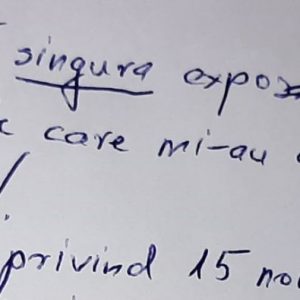 singura expoz
care mi-au
privind 15 noi